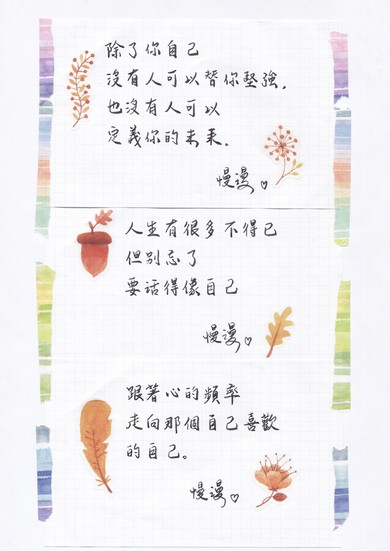 除了你自己
沒有人可以替你堅強，
也沒有人可以
定義你的未來。
慢漫♡
人生有很多不得已
但別忘了
要活得像自己
慢漫♡
跟著心的頻率
走向那個自己喜歡
的自己。
慢漫♡